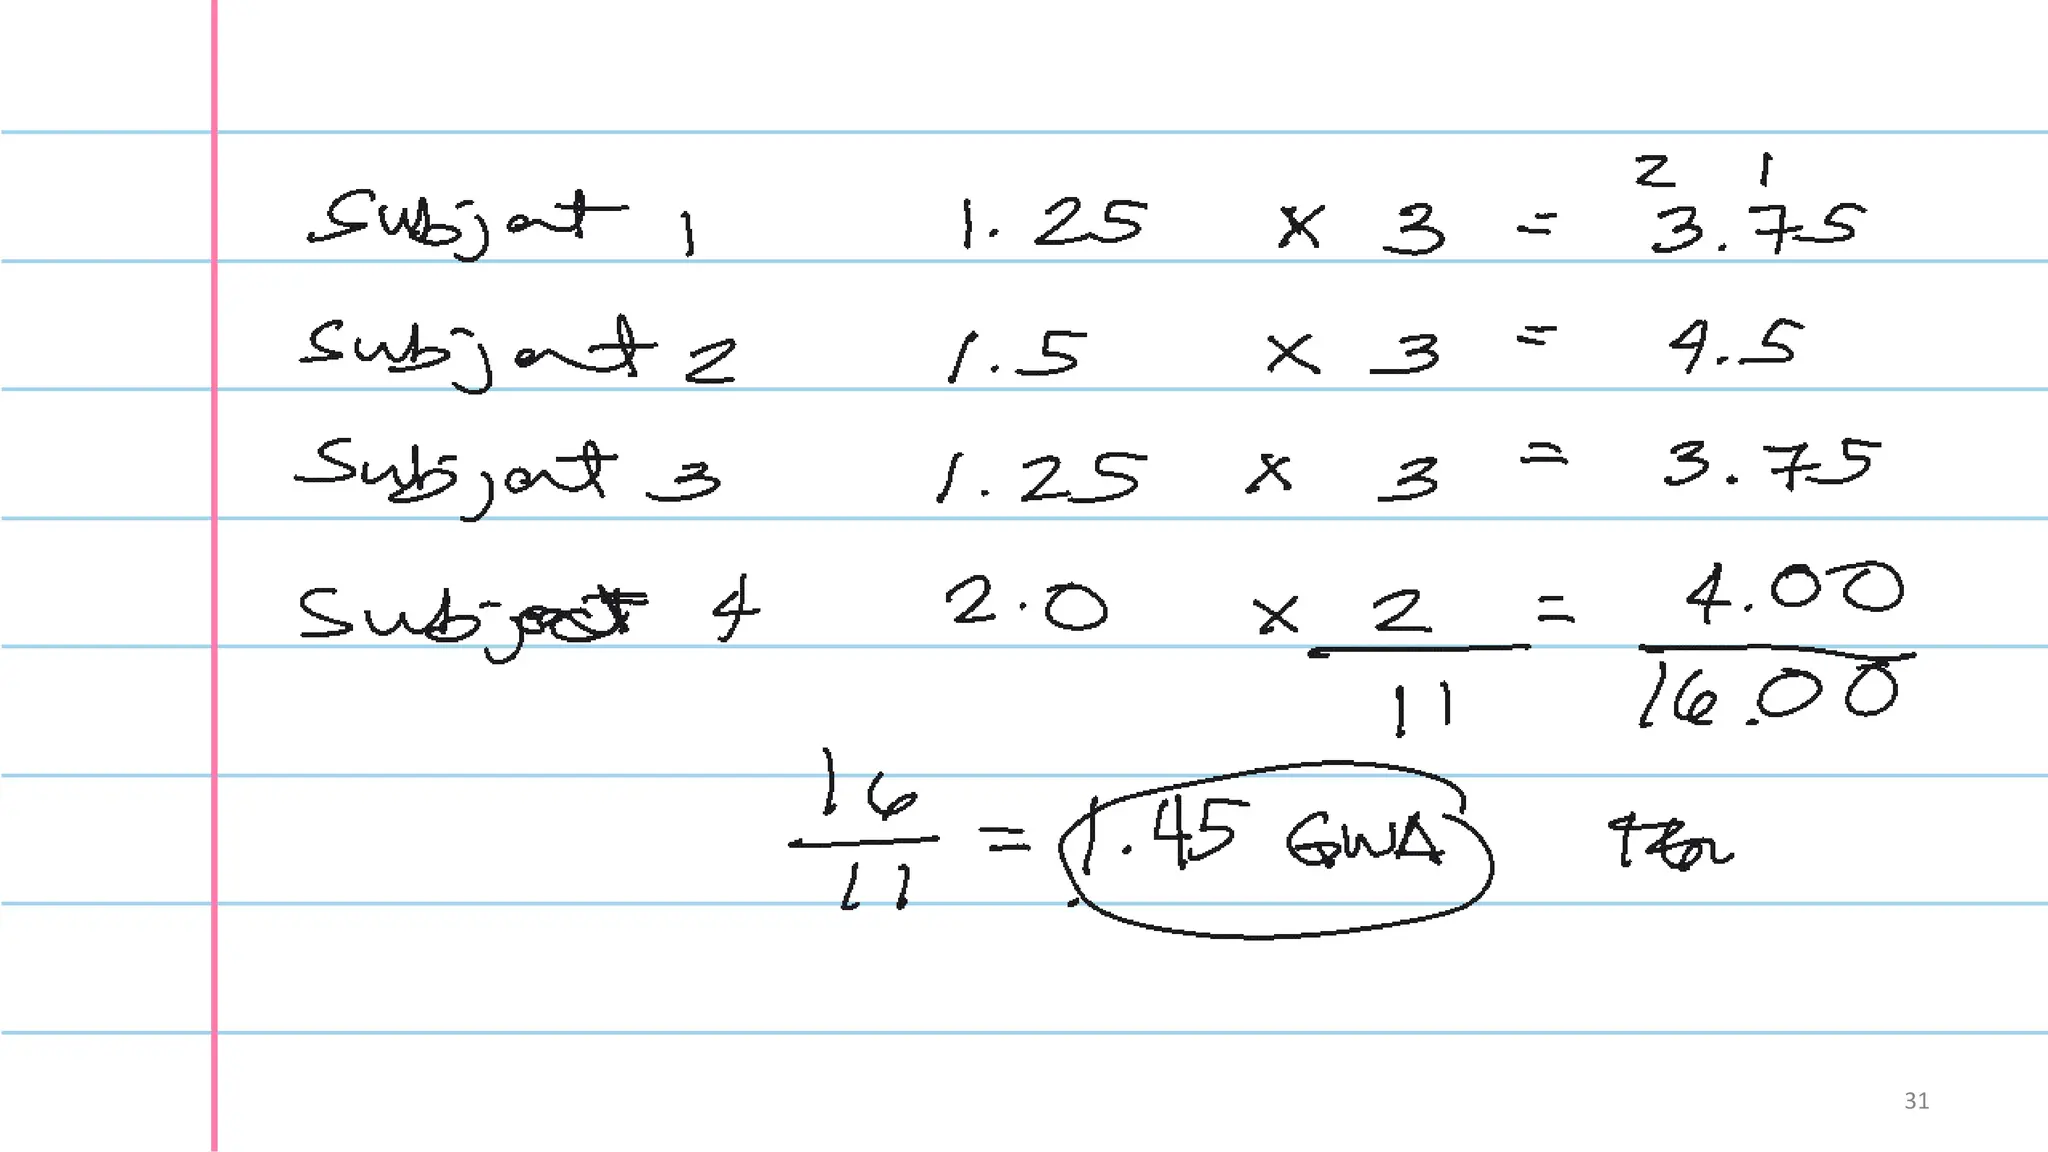 2 1
Subject 1 1.25 x 3 = 3.75
Subject 2 1.5 x 3 = 4.5
Subject 3 1.25 x 3 = 3.75
Subject 4 2.0 x 2 = 4.00
11 16.00
16
— = 1.45 GWA
11
31